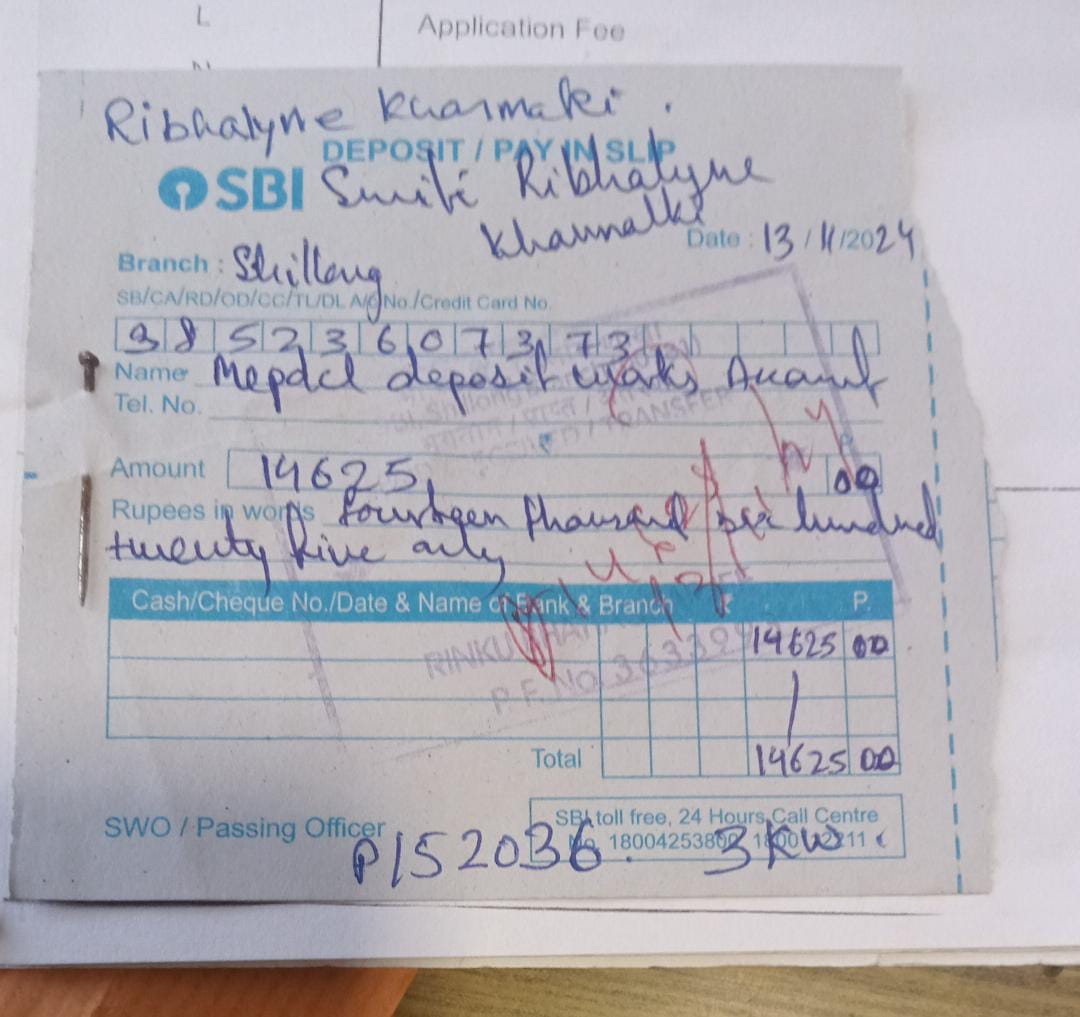 L
Application Fee
Ribhalyne Kharmalki.
DEPOSIT / PAY IN SLIP
SBI Smiti Ribhalyne
Kharmalki
Date : 13/11/2024
Branch : Shillong
SB/CA/RD/OD/CC/TL/DL A/c No./Credit Card No.
38523607373
Name Mepdcl deposit works
Tel. No.
Amount 14625 00
Rupees in words fourteen thousand six hundred
twenty five only
Cash/Cheque No./Date & Name of Bank & Branch ₹ P.
14625 00
RINKU
P.F. No. 36332
Total 14625 00
SWO / Passing Officer
SBI toll free, 24 Hours Call Centre
P152036. 3 KW